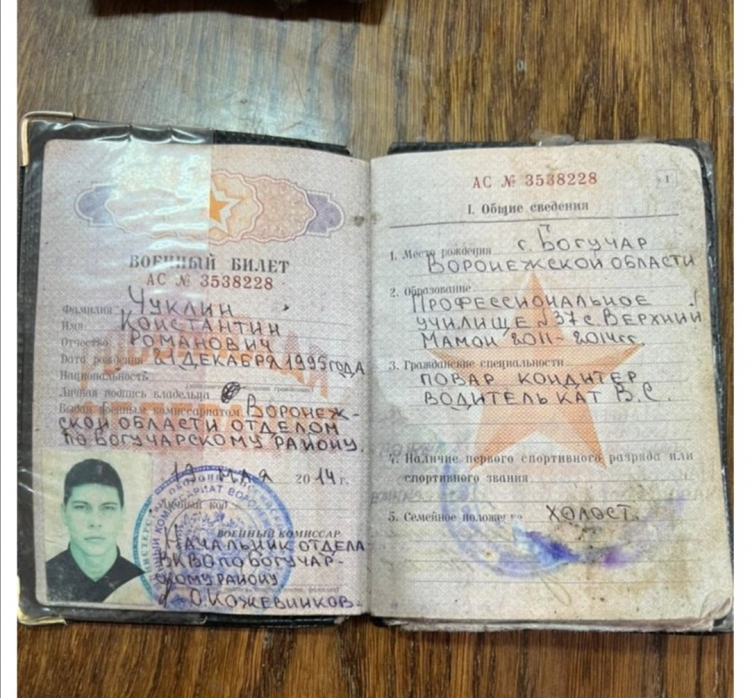 ВОЕННЫЙ БИЛЕТ
АС № 3538228
Фамилия ЧУКЛИН
Имя КОНСТАНТИН
Отчество РОМАНОВИЧ
Дата рождения 21 ДЕКАБРЯ 1995 ГОДА
Национальность
Личная подпись владельца
Выдан военным комиссариатом ВОРОНЕЖ-
СКОЙ ОБЛАСТИ ОТДЕЛОМ
ПО БОГУЧАРСКОМУ РАЙОНУ.
МАЯ 2014 г.
ВОЕННЫЙ КОМИССАР
НАЧАЛЬНИК ОТДЕЛА
ВКВО ПО БОГУЧАР-
СКОМУ РАЙОНУ
О. КОЖЕВНИКОВ.
АС № 3538228
1
I. Общие сведения
1. Место рождения г. БОГУЧАР
ВОРОНЕЖСКОЙ ОБЛАСТИ
2. Образование
ПРОФЕССИОНАЛЬНОЕ
УЧИЛИЩЕ №37 с. ВЕРХНИЙ
МАМОН 2011-2014гг.
3. Гражданские специальности
ПОВАР КОНДИТЕР
ВОДИТЕЛЬ КАТ В.С.
4. Наличие первого спортивного разряда или
спортивного звания
5. Семейное положение ХОЛОСТ.